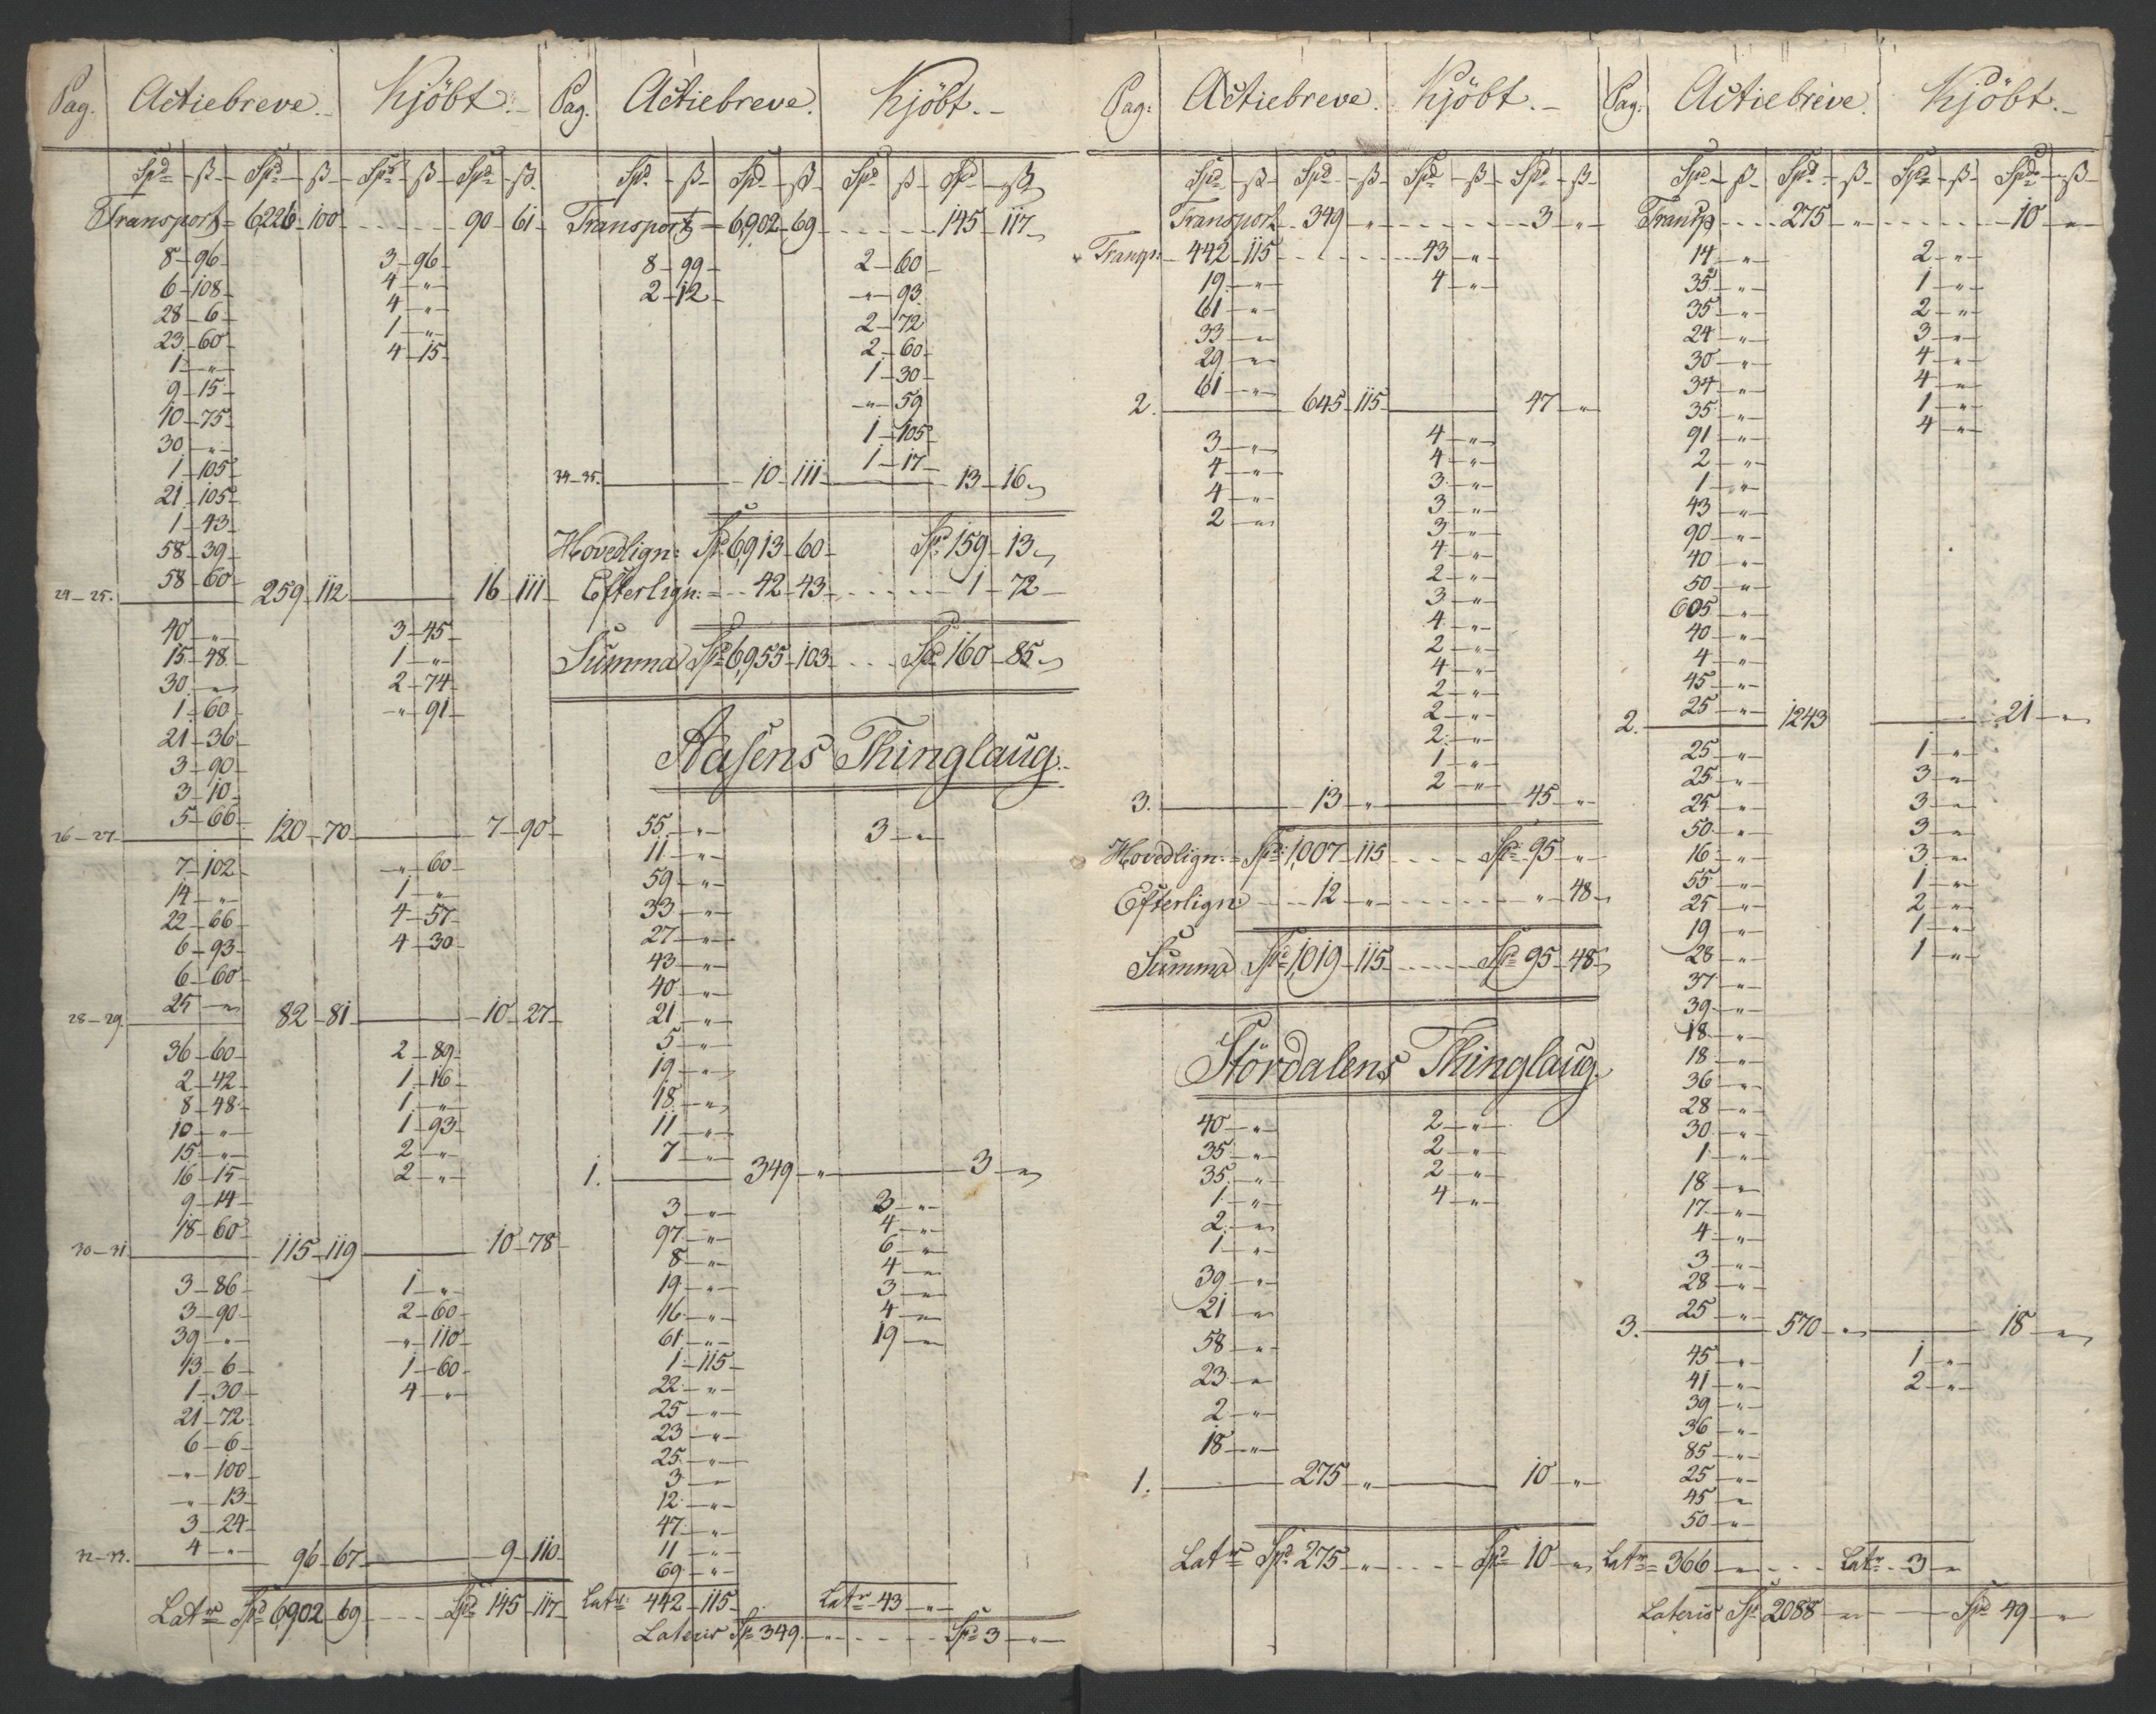 Pag. Actiebreve. Kjöbt.
Spd ß Spd ß Spd ß Spd ß
Transport = 6226 100 90 61
8 96 3 96
6 108 4 "
28 6 4 "
23 60 1 "
1 " 4 15
9 15
10 75
30 "
1 105
21 105
1 43
58 39
58 60
24-25. 259 112 16 111
40 " 3 45
15 48 1 "
30 " 2 74
1 60 " 91
21 36
3 90
3 10
5 66
26-27 120 70 7 90
7 102 " 60
14 " 1 "
22 66 4 57
6 93 4 30
6 60
25 "
28-29. 82 81 10 27
36 60 2 89
2 42 1 16
8 48 1 "
10 " 1 93
15 " 2 "
16 15 2 "
9 14
18 60
30-31. 115 119 10 78
3 86 1 "
3 90 2 60
39 " " 110
13 6 1 60
1 30 4 "
21 72
6 6
" 100
" 13
3 24
4 "
32-33. 96 67 9 110
Latr Spd 6902 69 Spd 145 117
Pag. Actiebreve. Kjöbt.
Spd ß Spd ß Spd ß Spd ß
Transport = 6,902 69 145 117
8 99 2 60
2 12 " 93
2 72
2 60
1 30
" 59
1 105
1 17
34-35. 10 111 13 16
Hovedlign: Spd 6,913 60 Spd 159 13
Efterlign: = 42 43 1 72
Summa Spd 6,955 103 Spd 160 85
Aasens Thinglaug.
55 " 3 "
11 "
59 "
33 "
27 "
43 "
40 "
21 "
5 "
19 "
18 "
11 "
7 "
1. 349 " 3 "
3 " 3 "
97 " 4 "
8 " 6 "
19 " 4 "
16 " 3 "
61 " 4 "
1 115 19 "
22 "
25 "
23 "
25 "
3 "
12 "
47 "
11 "
69 "
Latr: 442 115 Latr 43 "
Lateris Spd 349 " Spd 3 "
Pag: Actiebreve. Kjöbt.
Spd ß Spd ß Spd ß Spd ß
Transport 349 " 3 "
Transp: 442 115 43 "
19 " 4 "
61 "
33 "
29 "
61 "
2. 645 115 47 "
3 " 4 "
4 " 4 "
4 " 3 "
2 " 3 "
3 "
4 "
2 "
3 "
4 "
2 "
4 "
2 "
2 "
2 "
1 "
2 "
3. 13 " 45 "
Hovedlign: = Spd: 1,007 115 Spd: 95 "
Efterlign: 12 " " 48
Summa Spd 1,019 115 Spd 95 48
Stördalens Thinglaug.
40 " 2 "
35 " 2 "
35 " 2 "
1 " 4 "
2 "
1 "
39 "
21 "
58 "
23 "
2 "
18 "
1. 275 " 10 "
Latr Spd 275 " Spd 10 "
Pag: Actiebreve. Kjöbt.
Spd ß Spd ß Spd ß Spd ß
Transp 275 " 10 "
14 " 2 "
35 " 1 "
35 " 2 "
24 " 3 "
30 " 4 "
34 " 4 "
35 " 1 "
91 " 4 "
2 "
1 "
43 "
90 "
40 "
50 "
605 "
40 "
4 "
45 "
25 "
2. 1243 21 "
25 " 1 "
25 " 3 "
25 " 3 "
50 " 3 "
16 " 3 "
55 " 1 "
25 " 2 "
19 " 1 "
28 " 1 "
37 "
39 "
18 "
18 "
36 "
28 "
30 "
1 "
18 "
17 "
4 "
3 "
28 "
25 "
3. 570 " 18 "
45 " 1 "
41 " 2 "
39 "
36 "
85 "
25 "
45 "
50 "
Latr = 366 " Latr 3 "
Lateris Spd 2088 " Spd 49 "